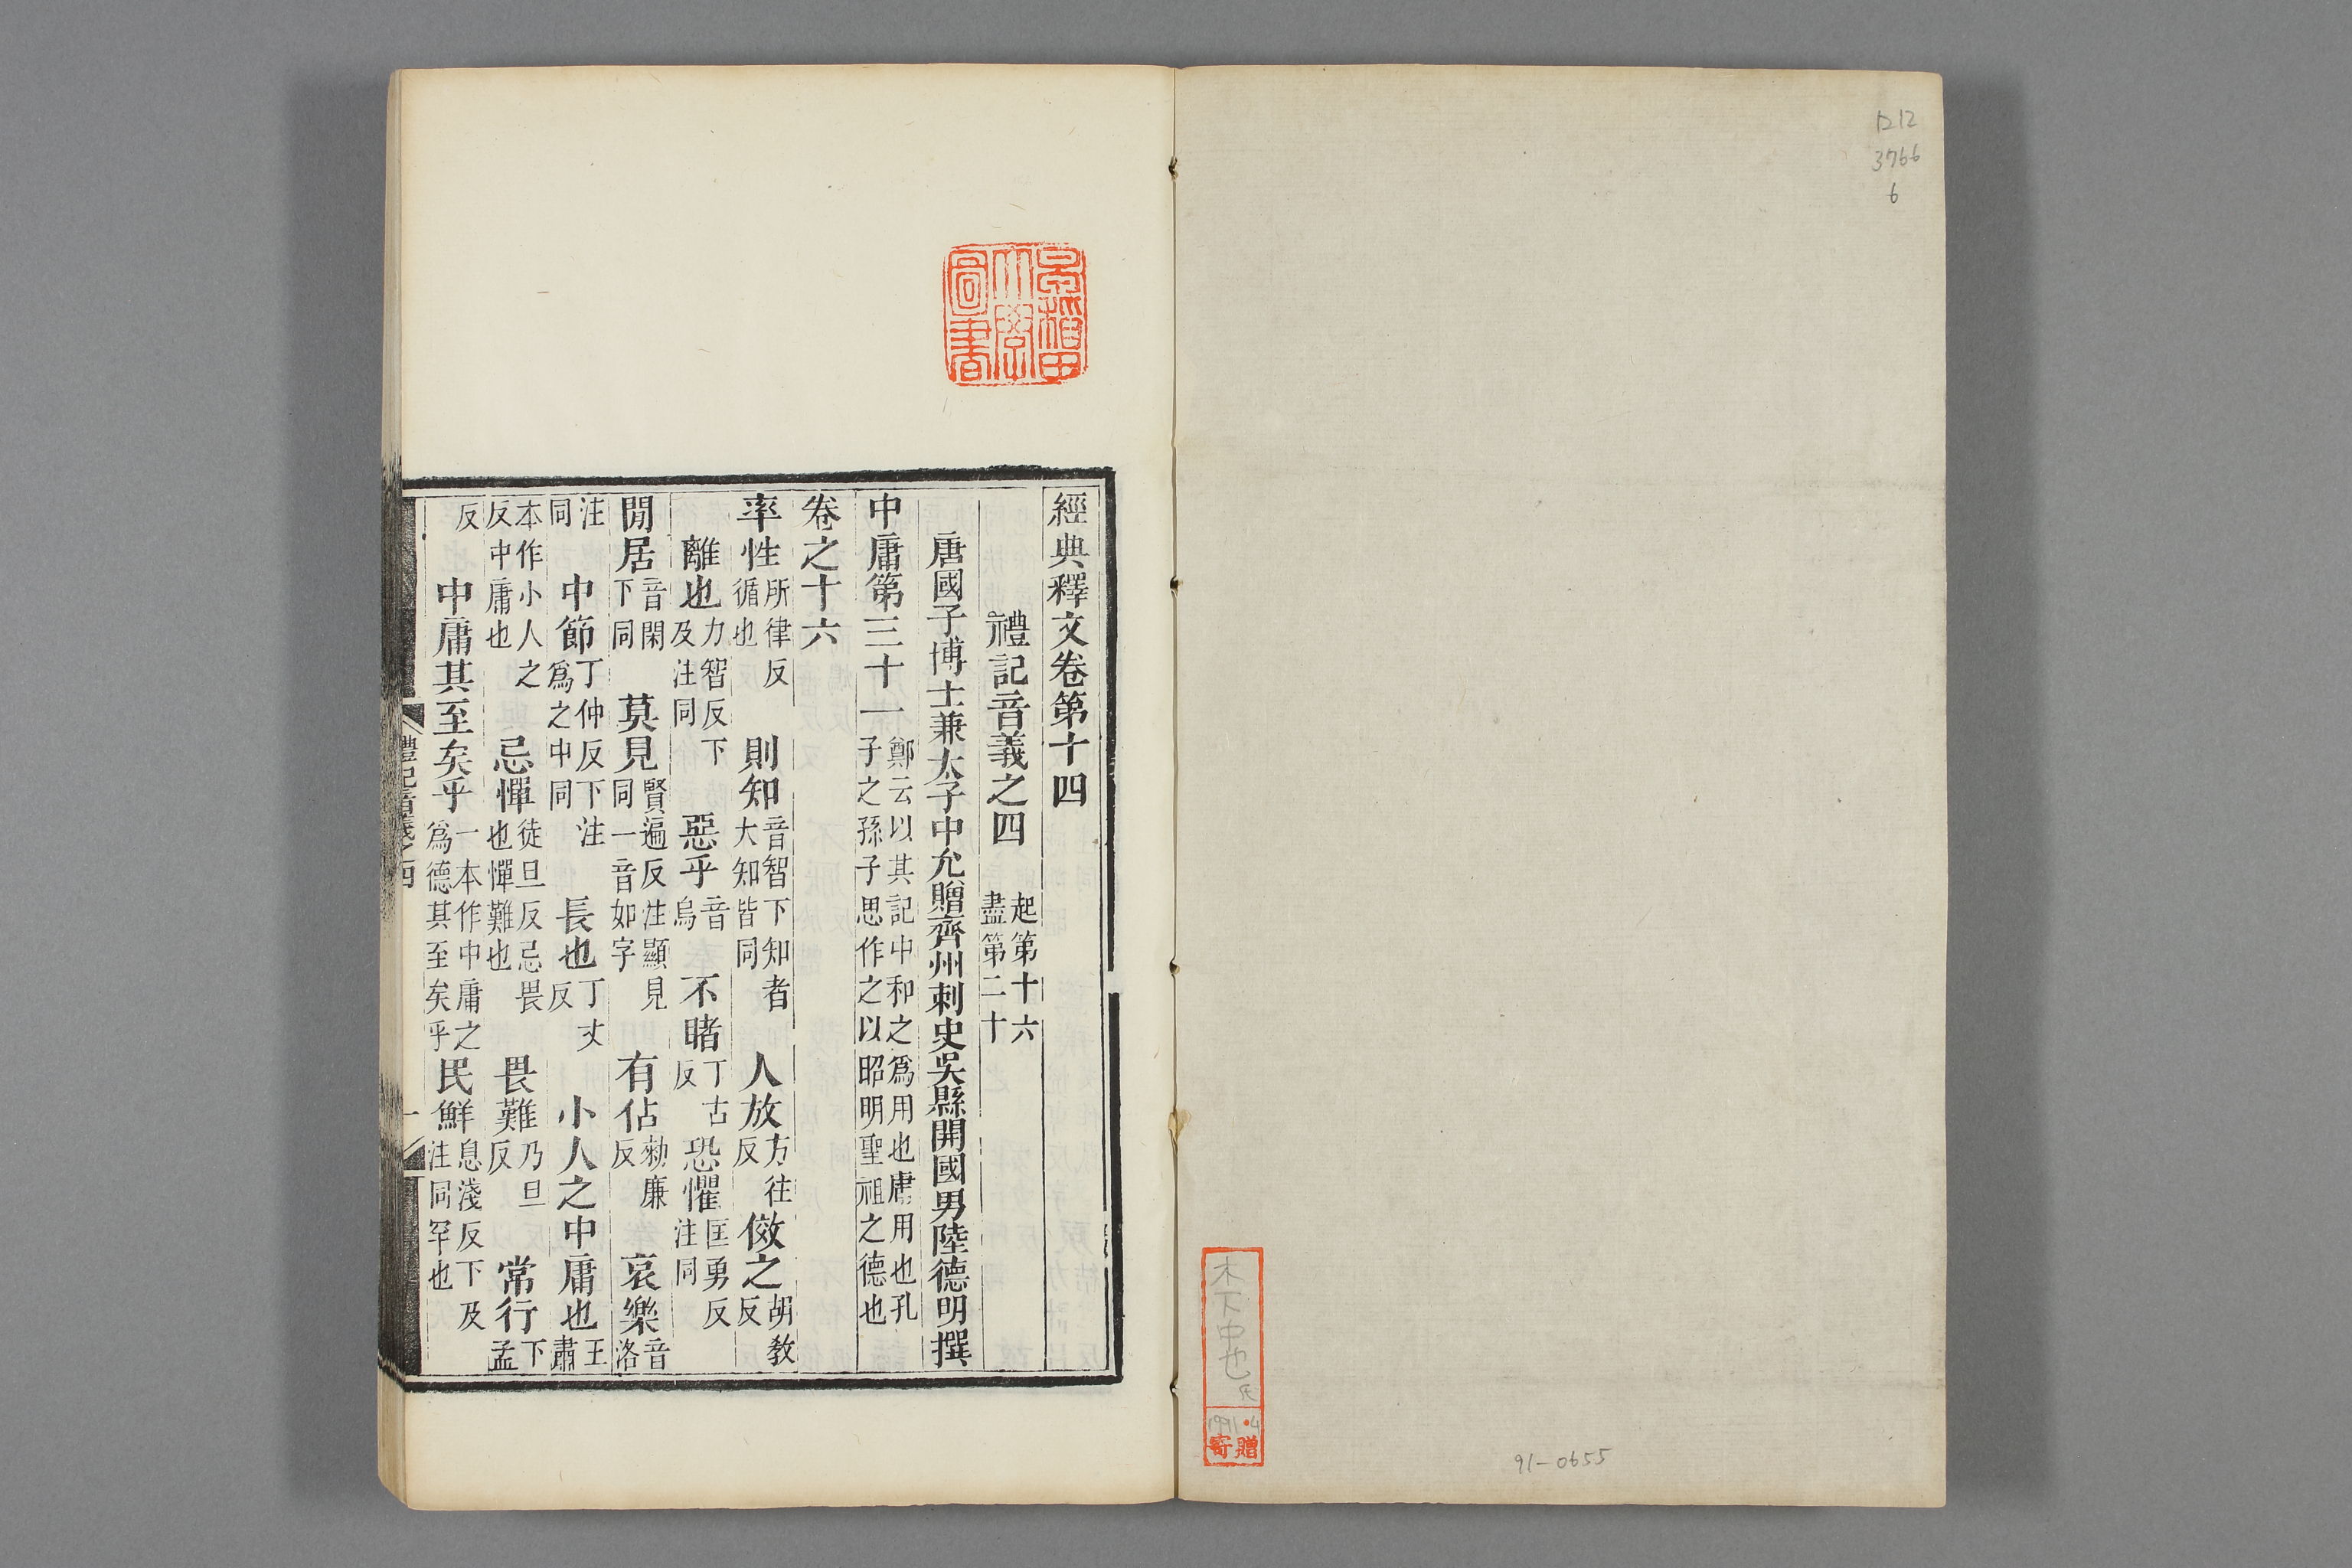 ロ12
3766
6
木下中也氏
1991・4
寄贈
91-0655
早稲田大學圖書
經典釋文卷第十四
禮記音義之四 起第十六盡第二十
唐國子博士兼太子中允贈齊州刺史吳縣開國男陸德明撰
中庸第三十一 鄭云以其記中和之爲用也庸用也孔子之孫子思作之以昭明聖祖之德也
卷之十六
率性 所律反循也 則知 音智下知者大知皆同 人放 方往反 傚之 胡教反
離也 力智反下及注同 惡乎 音烏 不睹 丁古反 恐懼 匡勇反注同
閒居 音閑下同 莫見 賢遍反注顯見同一音如字 有佔 勑廉反 哀樂 音洛
注同 中節 丁仲反下注爲之中同 長也 丁丈反 小人之中庸也 王肅
本作小人之反中庸也 忌憚 徒旦反忌畏也憚難也 畏難 乃旦反 常行 下孟
反 中庸其至矣乎 一本作中庸之爲德其至矣乎 民鮮 息淺反下及注同罕也
禮記音義之四
一